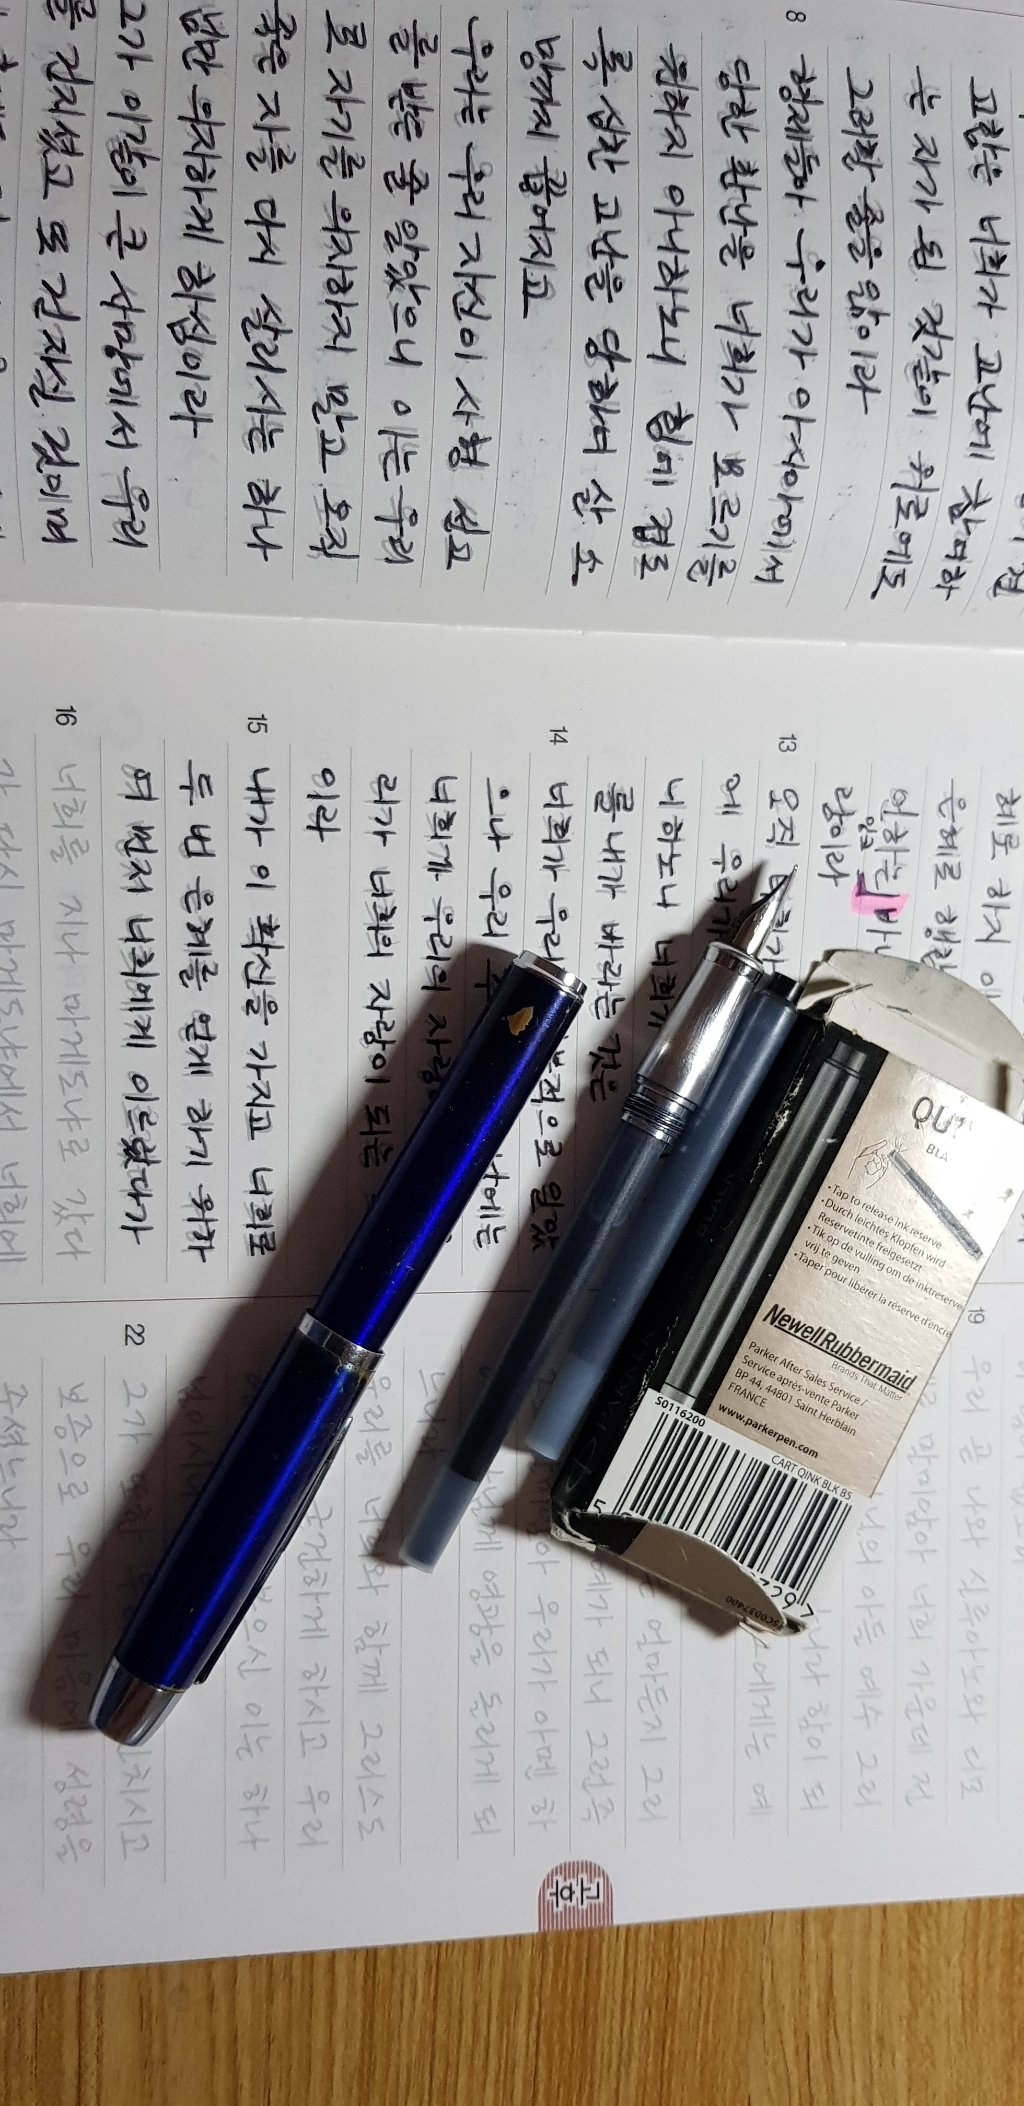 고함은 너희가 고난에 참여하
는 자가 된 것같이 위로에도
그러할 줄을 앎이라
8 형제들아 우리가 아시아에서
당한 환난을 너희가 모르기를
원하지 아니하노니 힘에 겹도
록 심한 고난을 당하여 살 소
망까지 끊어지고
우리는 우리 자신이 사형 선고
를 받은 줄 알았으니 이는 우리
로 자기를 의지하지 말고 오직
죽은 자를 다시 살리시는 하나
님만 의지하게 하심이라
그가 이같이 큰 사망에서 우리
를 건지셨고 또 건지실 것이며
혜로 하지
은혜로 행함
언하는
랑이라
13 오직
에 우리가
니하노니 너희가
를 내가 바라는 것은
14 너희가 우리 분적으로 알았
으나 우리 날에는
너희가 우리의 자랑
리가 너희의 자랑이 되는
이라
15 내가 이 확신을 가지고 너희로
두 번 은혜를 얻게 하기 위하
여 먼저 너희에게 이르렀다가
16 너희를 지나 마게도냐로 갔다
가 다시 마게도냐에서 너희에
19 우리 곧 나와 실루아노와 디모
말미암아 너희 가운데 전
아들 예수 그리
함이 되
에게는 예
얼마든지 그리
되니 그런즉
우리가 아멘 하
영광을 돌리게 되
우리를 너희와 함께 그리스도
굳건하게 하시고 우리
이는 하나
22 그가 또한 치시고
보증으로 우리 마음에 성령을
주셨느니라
고후
• Tap to release ink reserve
• Durch leichtes Klopfen wird
Reservetinte freigesetzt
• Tik op de vulling om de inktreserve
vrij te geven
• Taper pour libérer la réserve d'encre
NewellRubbermaid
Brands That Matter
Parker After Sales Service /
Service après-vente Parker
BP 44, 44801 Saint Herblain
FRANCE
www.parkerpen.com
S0116200
CART QINK BLK B5